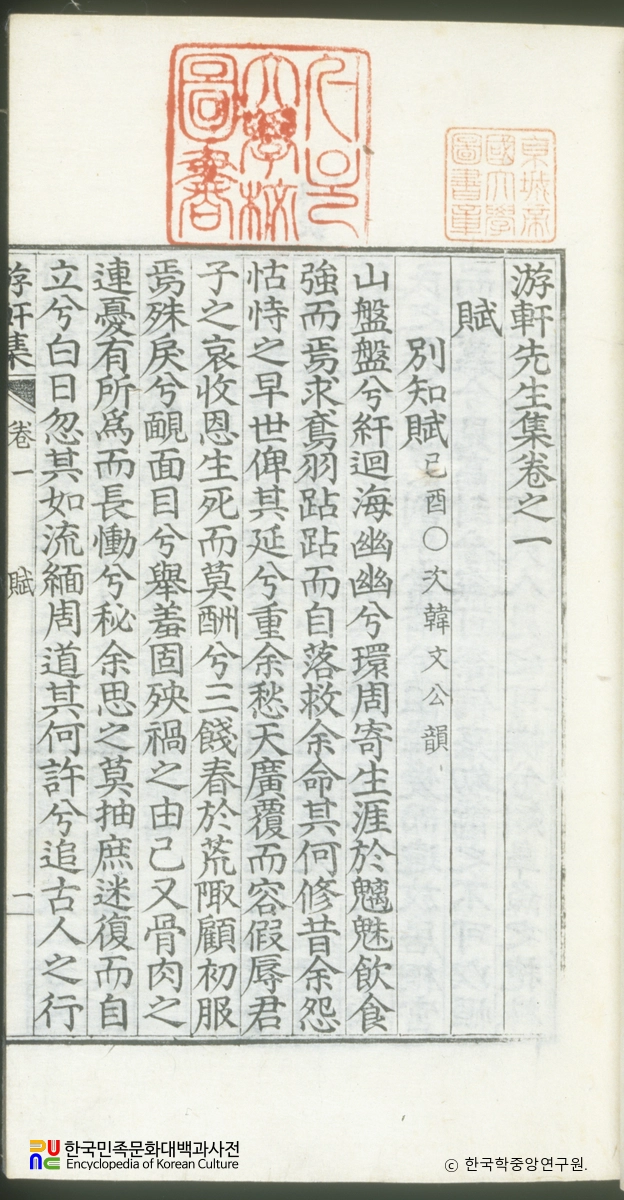 서울
大學校
圖書
京城帝
國大學
圖書章
游軒先生集卷之一
賦
別知賦 己酉〇次韓文公韻
山盤盤兮紆迴海幽幽兮環周寄生涯於魑魅飲食
強而焉求鳶羽跕跕而自落救余命其何修昔余怨
怙恃之早世俾其延兮重余愁天廣覆而容假辱君
子之哀收恩生死而莫酬兮三餞春於荒陬顧初服
焉殊戾兮靦面目兮舉羞固殃禍之由己又骨肉之
連憂有所爲而長慟兮秘余思之莫抽庶迷復而自
立兮白日忽其如流緬周道其何許兮追古人之行
游軒集 卷一 賦
한국민족문화대백과사전
Encyclopedia of Korean Culture
© 한국학중앙연구원.